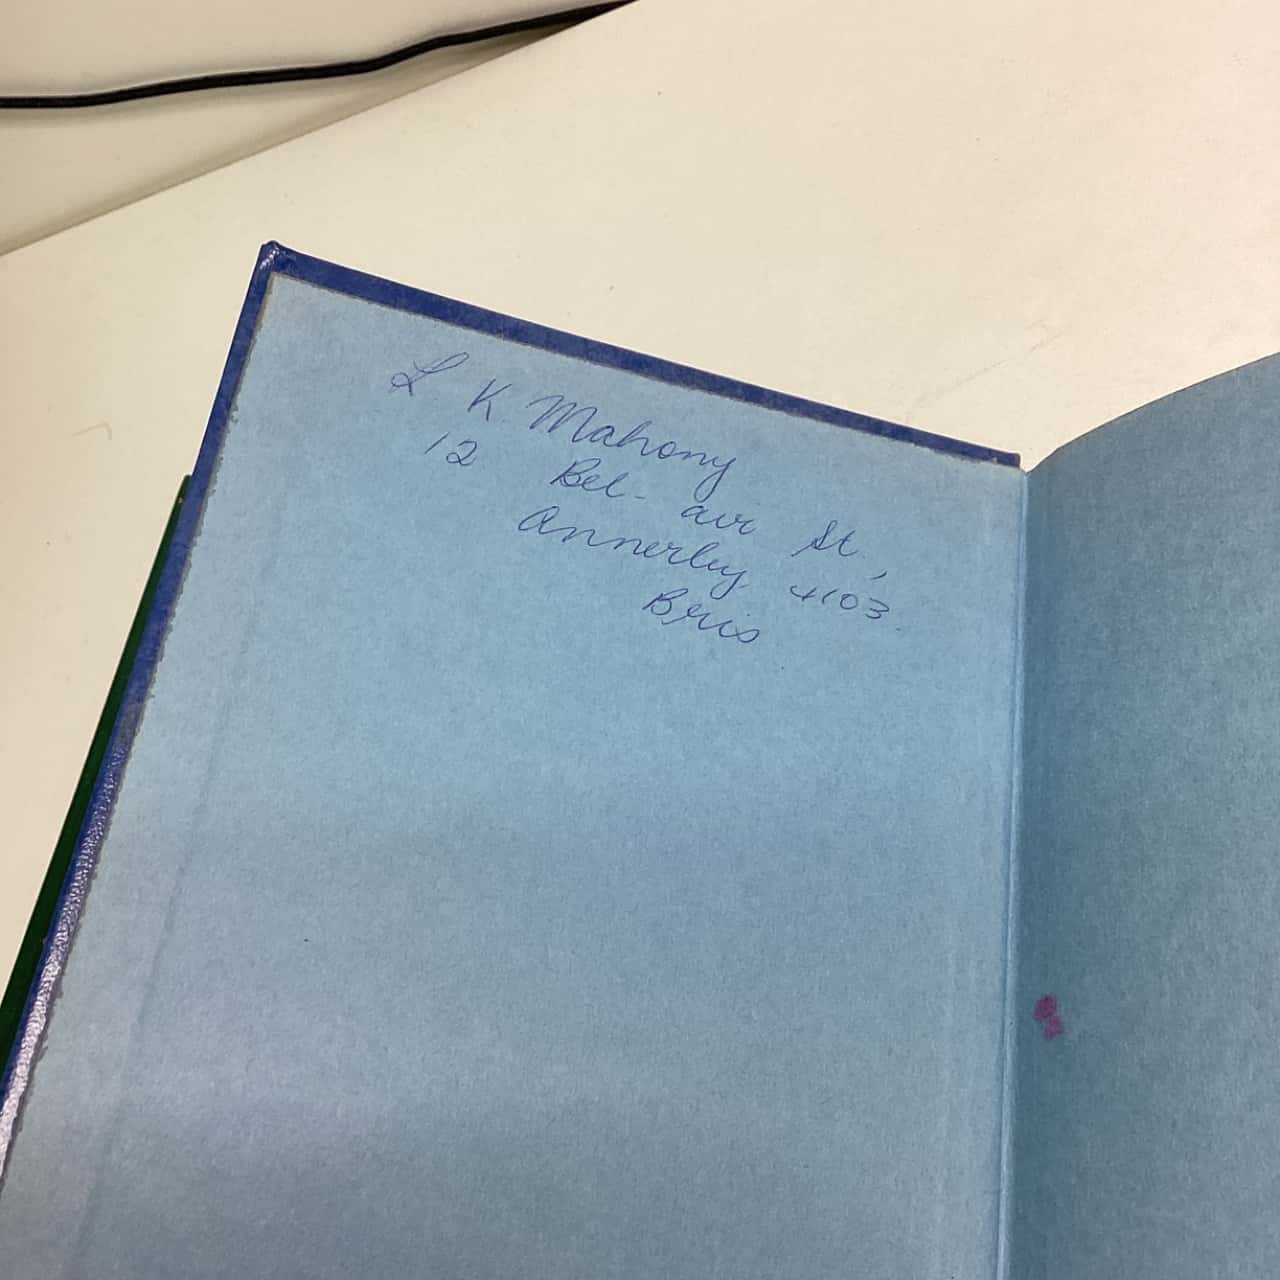 L K. Mahony
12 Bel-air St.,
Annerley 4103.
Bris